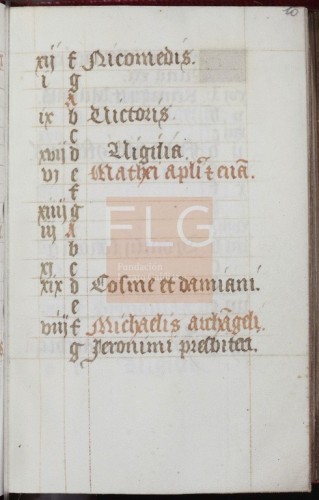 10
xij f Nicomedis.
i g
A
ix b Victoris.
c
xvij d Vigilia.
vi e Mathei apli et eua.
f
xiiij g
iij A
b
xi c
xix d Cosme et damiani.
e
viij f Michaelis archageli.
g Jeronimi presbiteri.
FLG
Fundación